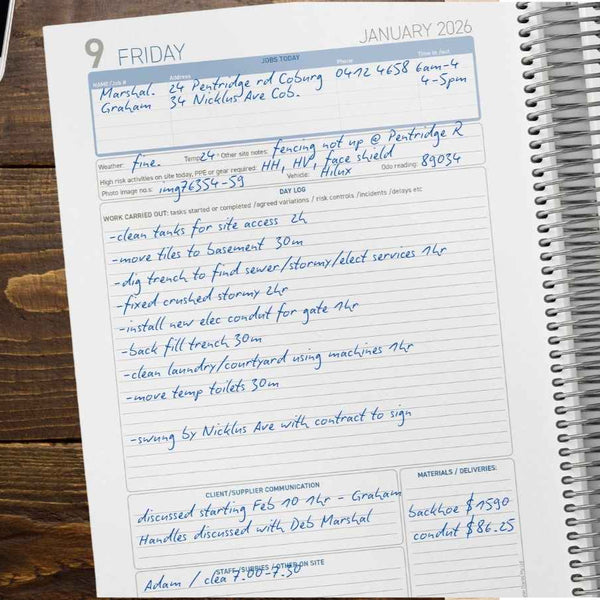 9 FRIDAY
JANUARY 2026
JOBS TODAY
NAME/Job # Address Phone Time in /out
Marshal. 24 Pentridge rd Coburg 0412 4658 6am-4
Graham 34 Nicklus Ave Cob. 4-5pm
Weather: fine. Temp 24° Other site notes: fencing not up @ Pentridge R
High risk activities on site today, PPE or gear required: HH, HV, face shield
Photo image no.s: img76354-59 Vehicle: Hilux Odo reading: 89034
DAY LOG
WORK CARRIED OUT: tasks started or completed /agreed variations / risk controls /incidents /delays etc
-clean tanks for site access 2h
-move tiles to basement 30m
-dig trench to find sewer/stormy/elect services 1hr
-fixed crushed stormy 2hr
-install new elec condut for gate 1hr
-back fill trench 30m
-clean laundry/courtyard using machines 1hr
-move temp toilets 30m
-swung by Nicklus Ave with contract to sign
CLIENT/SUPPLIER COMMUNICATION
discussed starting Feb 10 1hr - Graham
Handles discussed with Deb Marshal
MATERIALS / DELIVERIES:
backhoe $1590
condut $86.25
STAFF/SUBBIES /OTHER ON SITE
Adam / clea 7.00-7.30